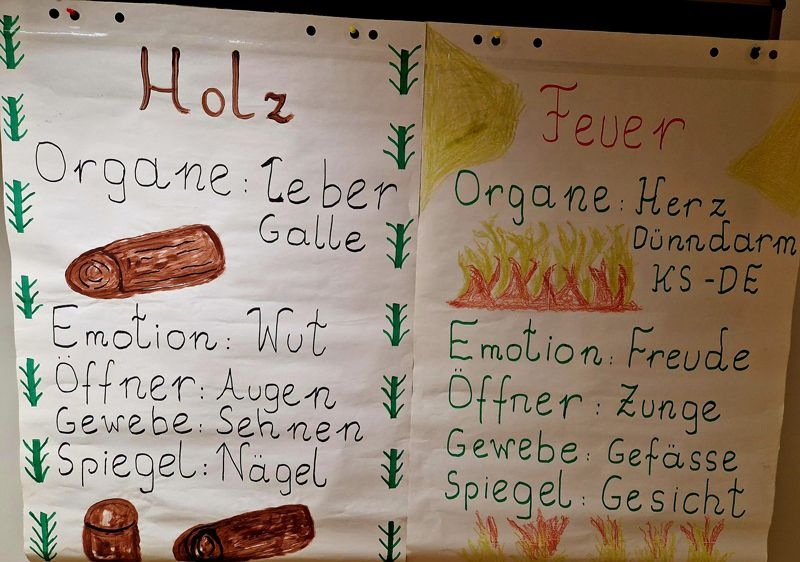 Holz
Organe: Leber
Galle
Emotion: Wut
Öffner: Augen
Gewebe: Sehnen
Spiegel: Nägel
Feuer
Organe: Herz
Dünndarm
KS-DE
Emotion: Freude
Öffner: Zunge
Gewebe: Gefässe
Spiegel: Gesicht